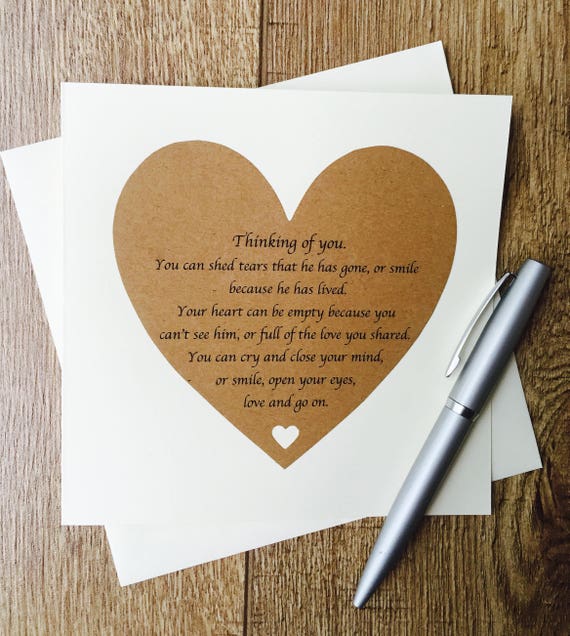 Thinking of you.
You can shed tears that he has gone, or smile
because he has lived.
Your heart can be empty because you
can't see him, or full of the love you shared.
You can cry and close your mind,
or smile, open your eyes,
love and go on.